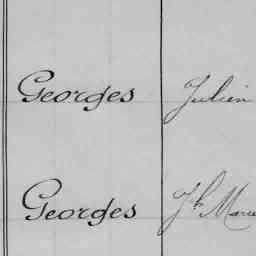 Georges Julien
Georges Jh Marie